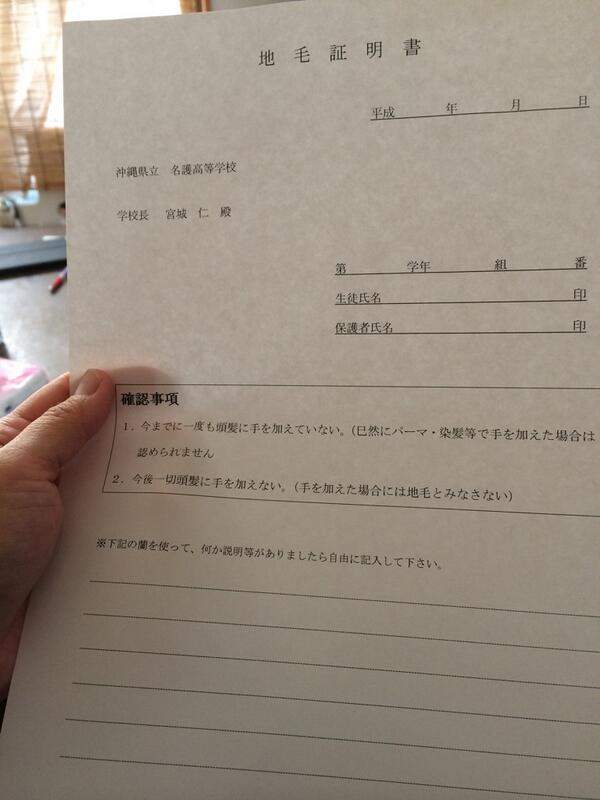 地毛証明書
平成 年 月 日
沖縄県立 名護高等学校
学校長 宮城 仁 殿
第 学年 組 番
生徒氏名 印
保護者氏名 印
確認事項
1．今までに一度も頭髪に手を加えていない。（巳然にパーマ・染髪等で手を加えた場合は
認められません
2．今後一切頭髪に手を加えない。（手を加えた場合には地毛とみなさない）
※下記の蘭を使って、何か説明等がありましたら自由に記入して下さい。